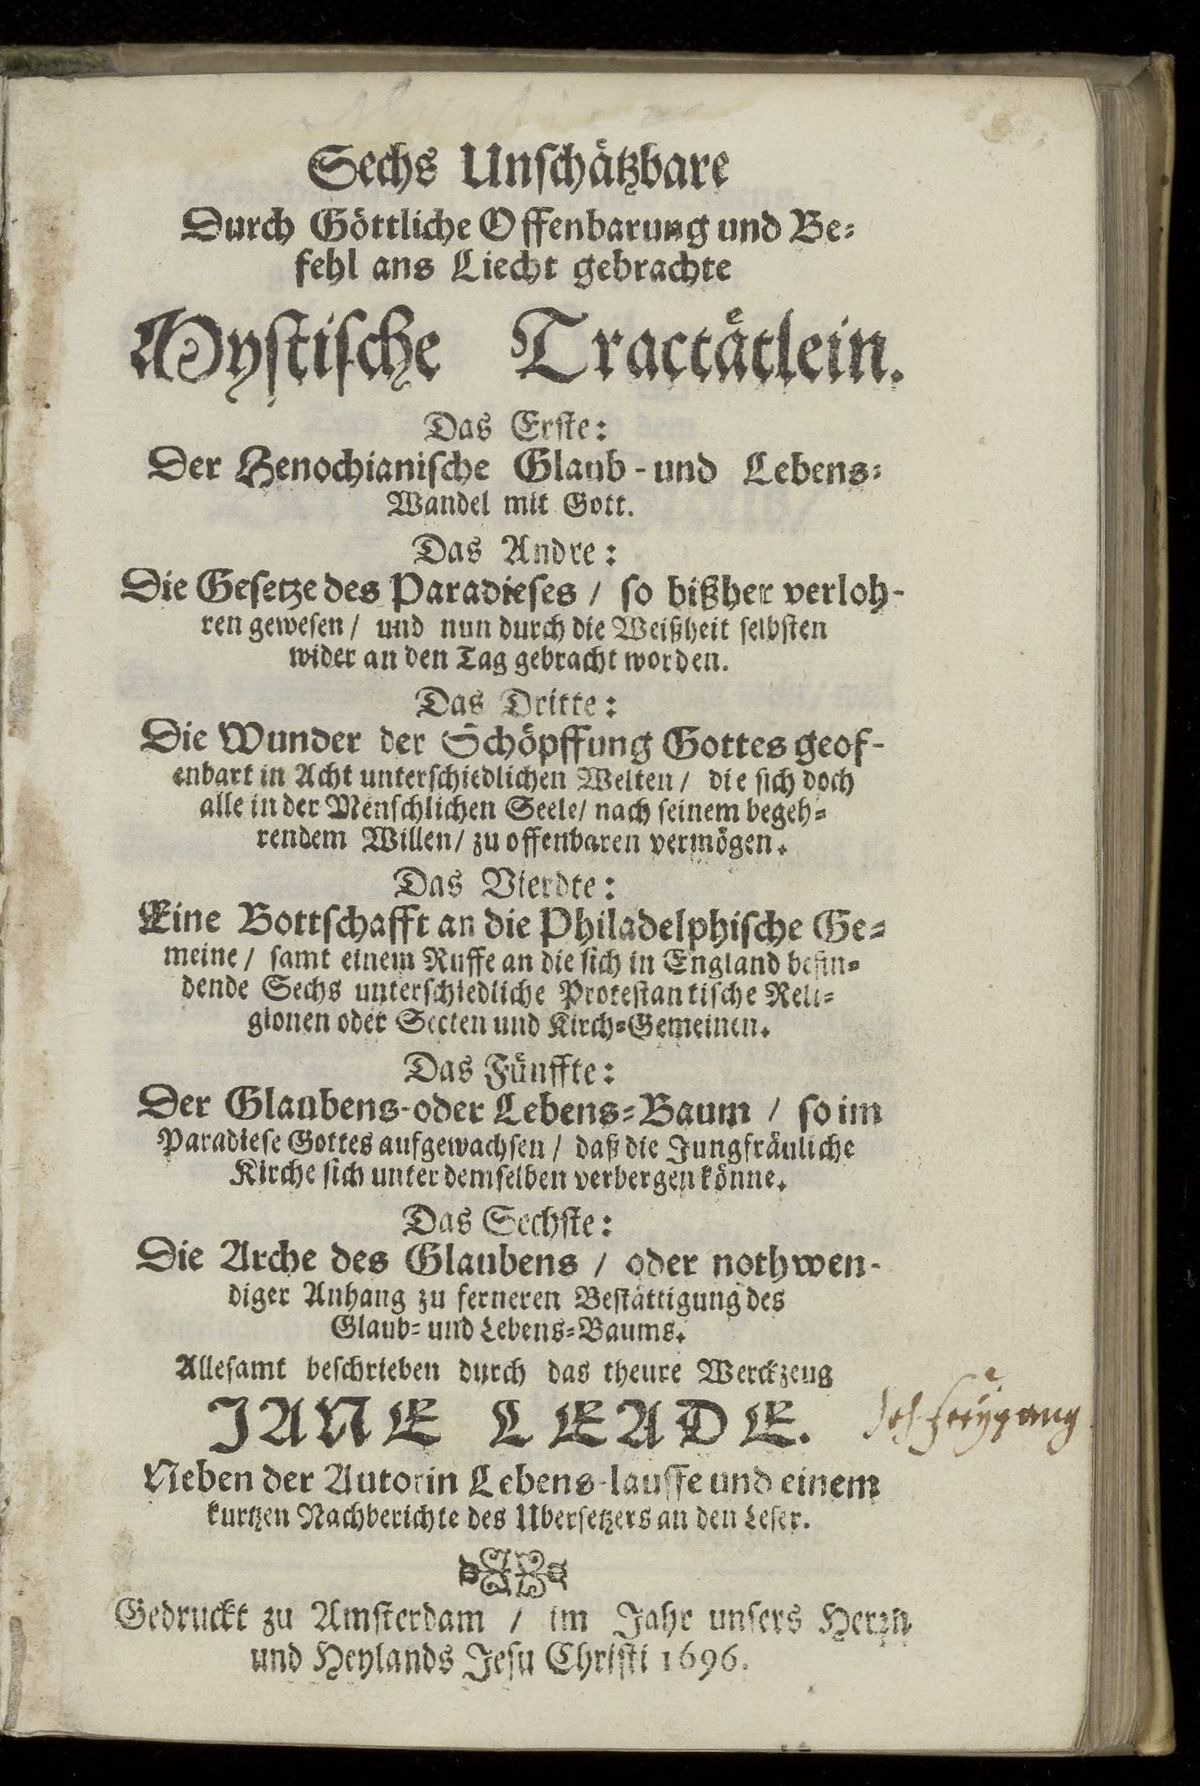 Sechs Unschätzbare
Durch Göttliche Offenbarung und Be-
fehl ans Liecht gebrachte
Mystische Tractätlein.
Das Erste:
Der Henochianische Glaub- und Lebens-
Wandel mit Gott.
Das Andre:
Die Gesetze des Paradieses / so bißher verloh-
ren gewesen / und nun durch die Weißheit selbsten
wider an den Tag gebracht worden.
Das Dritte:
Die Wunder der Schöpffung Gottes geof-
enbart in Acht unterschiedlichen Welten / die sich doch
alle in der Menschlichen Seele / nach seinem begeh-
rendem Willen / zu offenbaren vermögen.
Das Vierdte:
Eine Bottschafft an die Philadelphische Ge-
meine / samt einem Ruffe an die sich in England befin-
dende Sechs unterschiedliche Protestantische Reli-
gionen oder Secten und Kirch-Gemeinen.
Das Fünffte:
Der Glaubens- oder Lebens-Baum / so im
Paradiese Gottes aufgewachsen / daß die Jungfräuliche
Kirche sich unter demselben verbergen könne.
Das Sechste:
Die Arche des Glaubens / oder nothwen-
diger Anhang zu ferneren Bestättigung des
Glaub- und Lebens-Baums.
Allesamt beschrieben durch das theure Werckzeug
JANE LEADE.
Neben der Autorin Lebens-lauffe und einem
kurtzen Nachberichte des Ubersetzers an den Leser.
Gedruckt zu Amsterdam / im Jahr unsers Herrn
und Heylands Jesu Christi 1696.